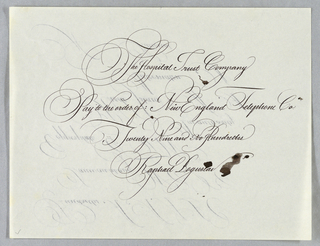 The Hospital Trust Company
Pay to the order of New England Telephone Co.
Twenty Nine and No Hundredths
Raphael